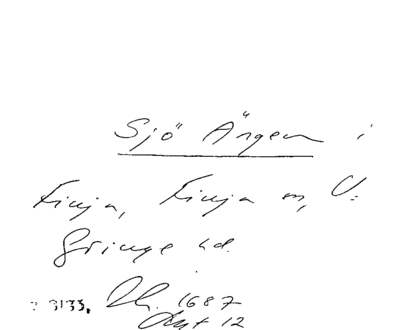 Sjö Ängen i
Finja, Finja sn, V.
Göinge hd.
3133. Lm. 1687
Akt 12